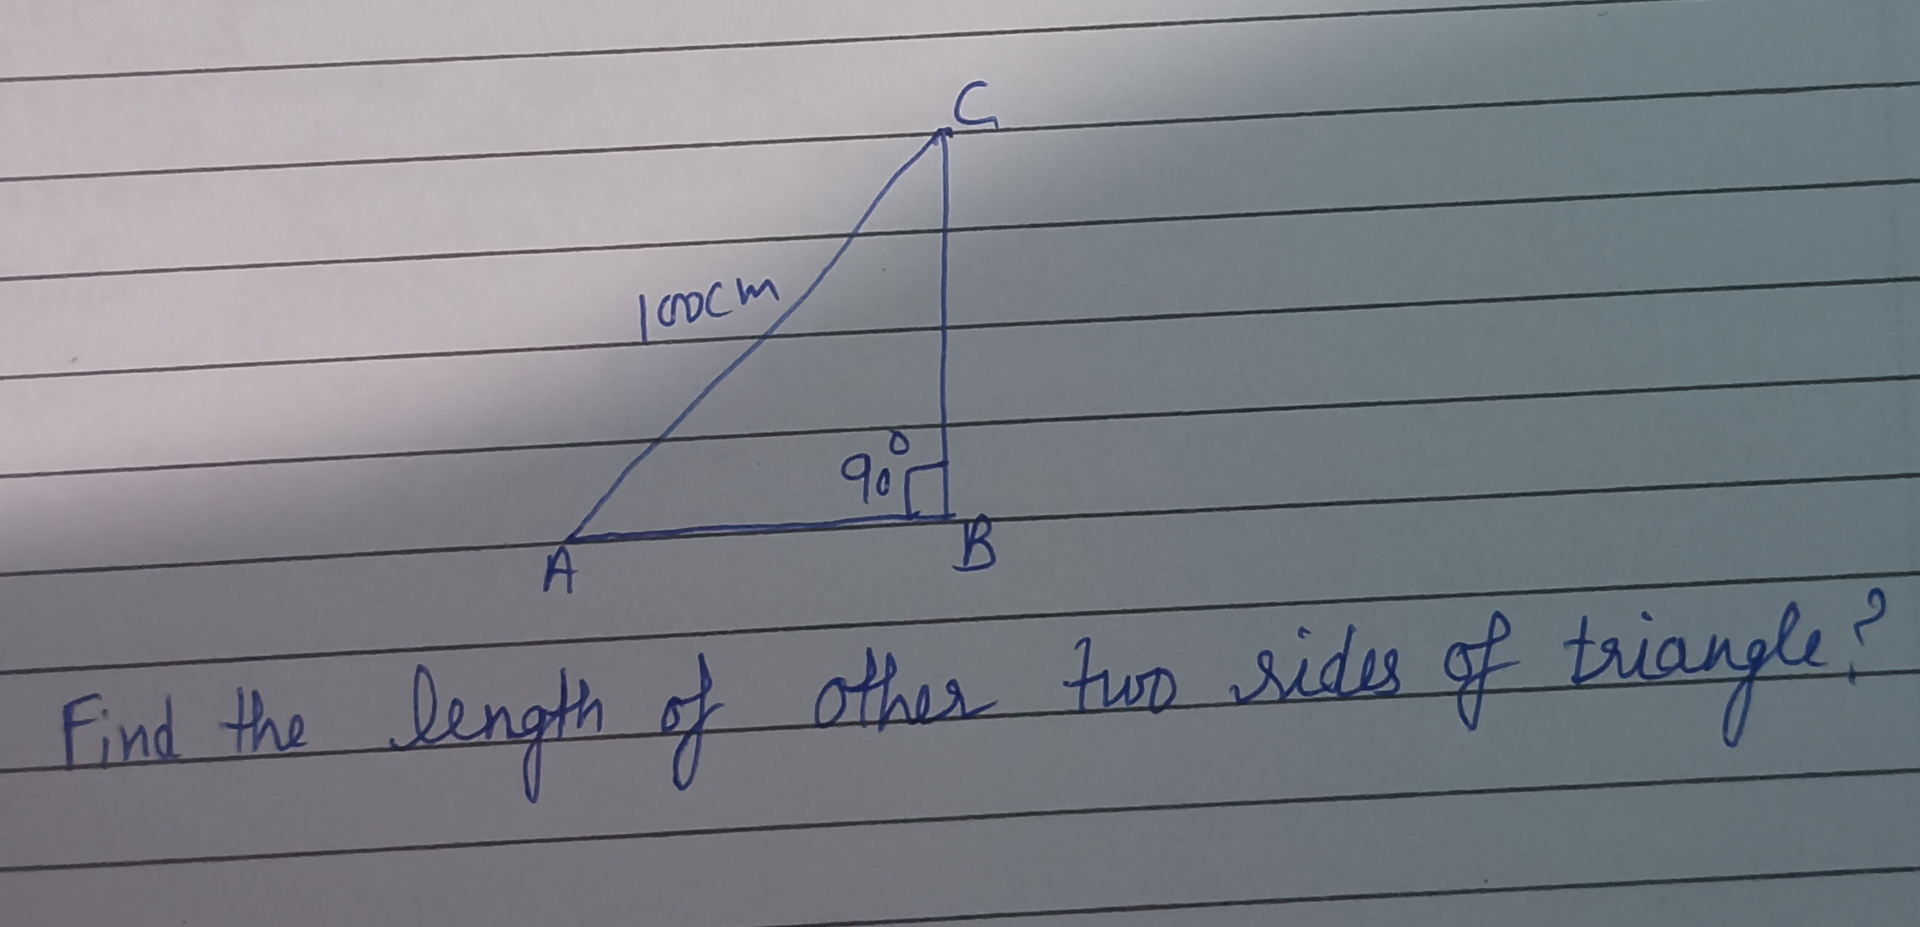 C
100cm
90°
A
B
Find the length of other two sides of triangle?